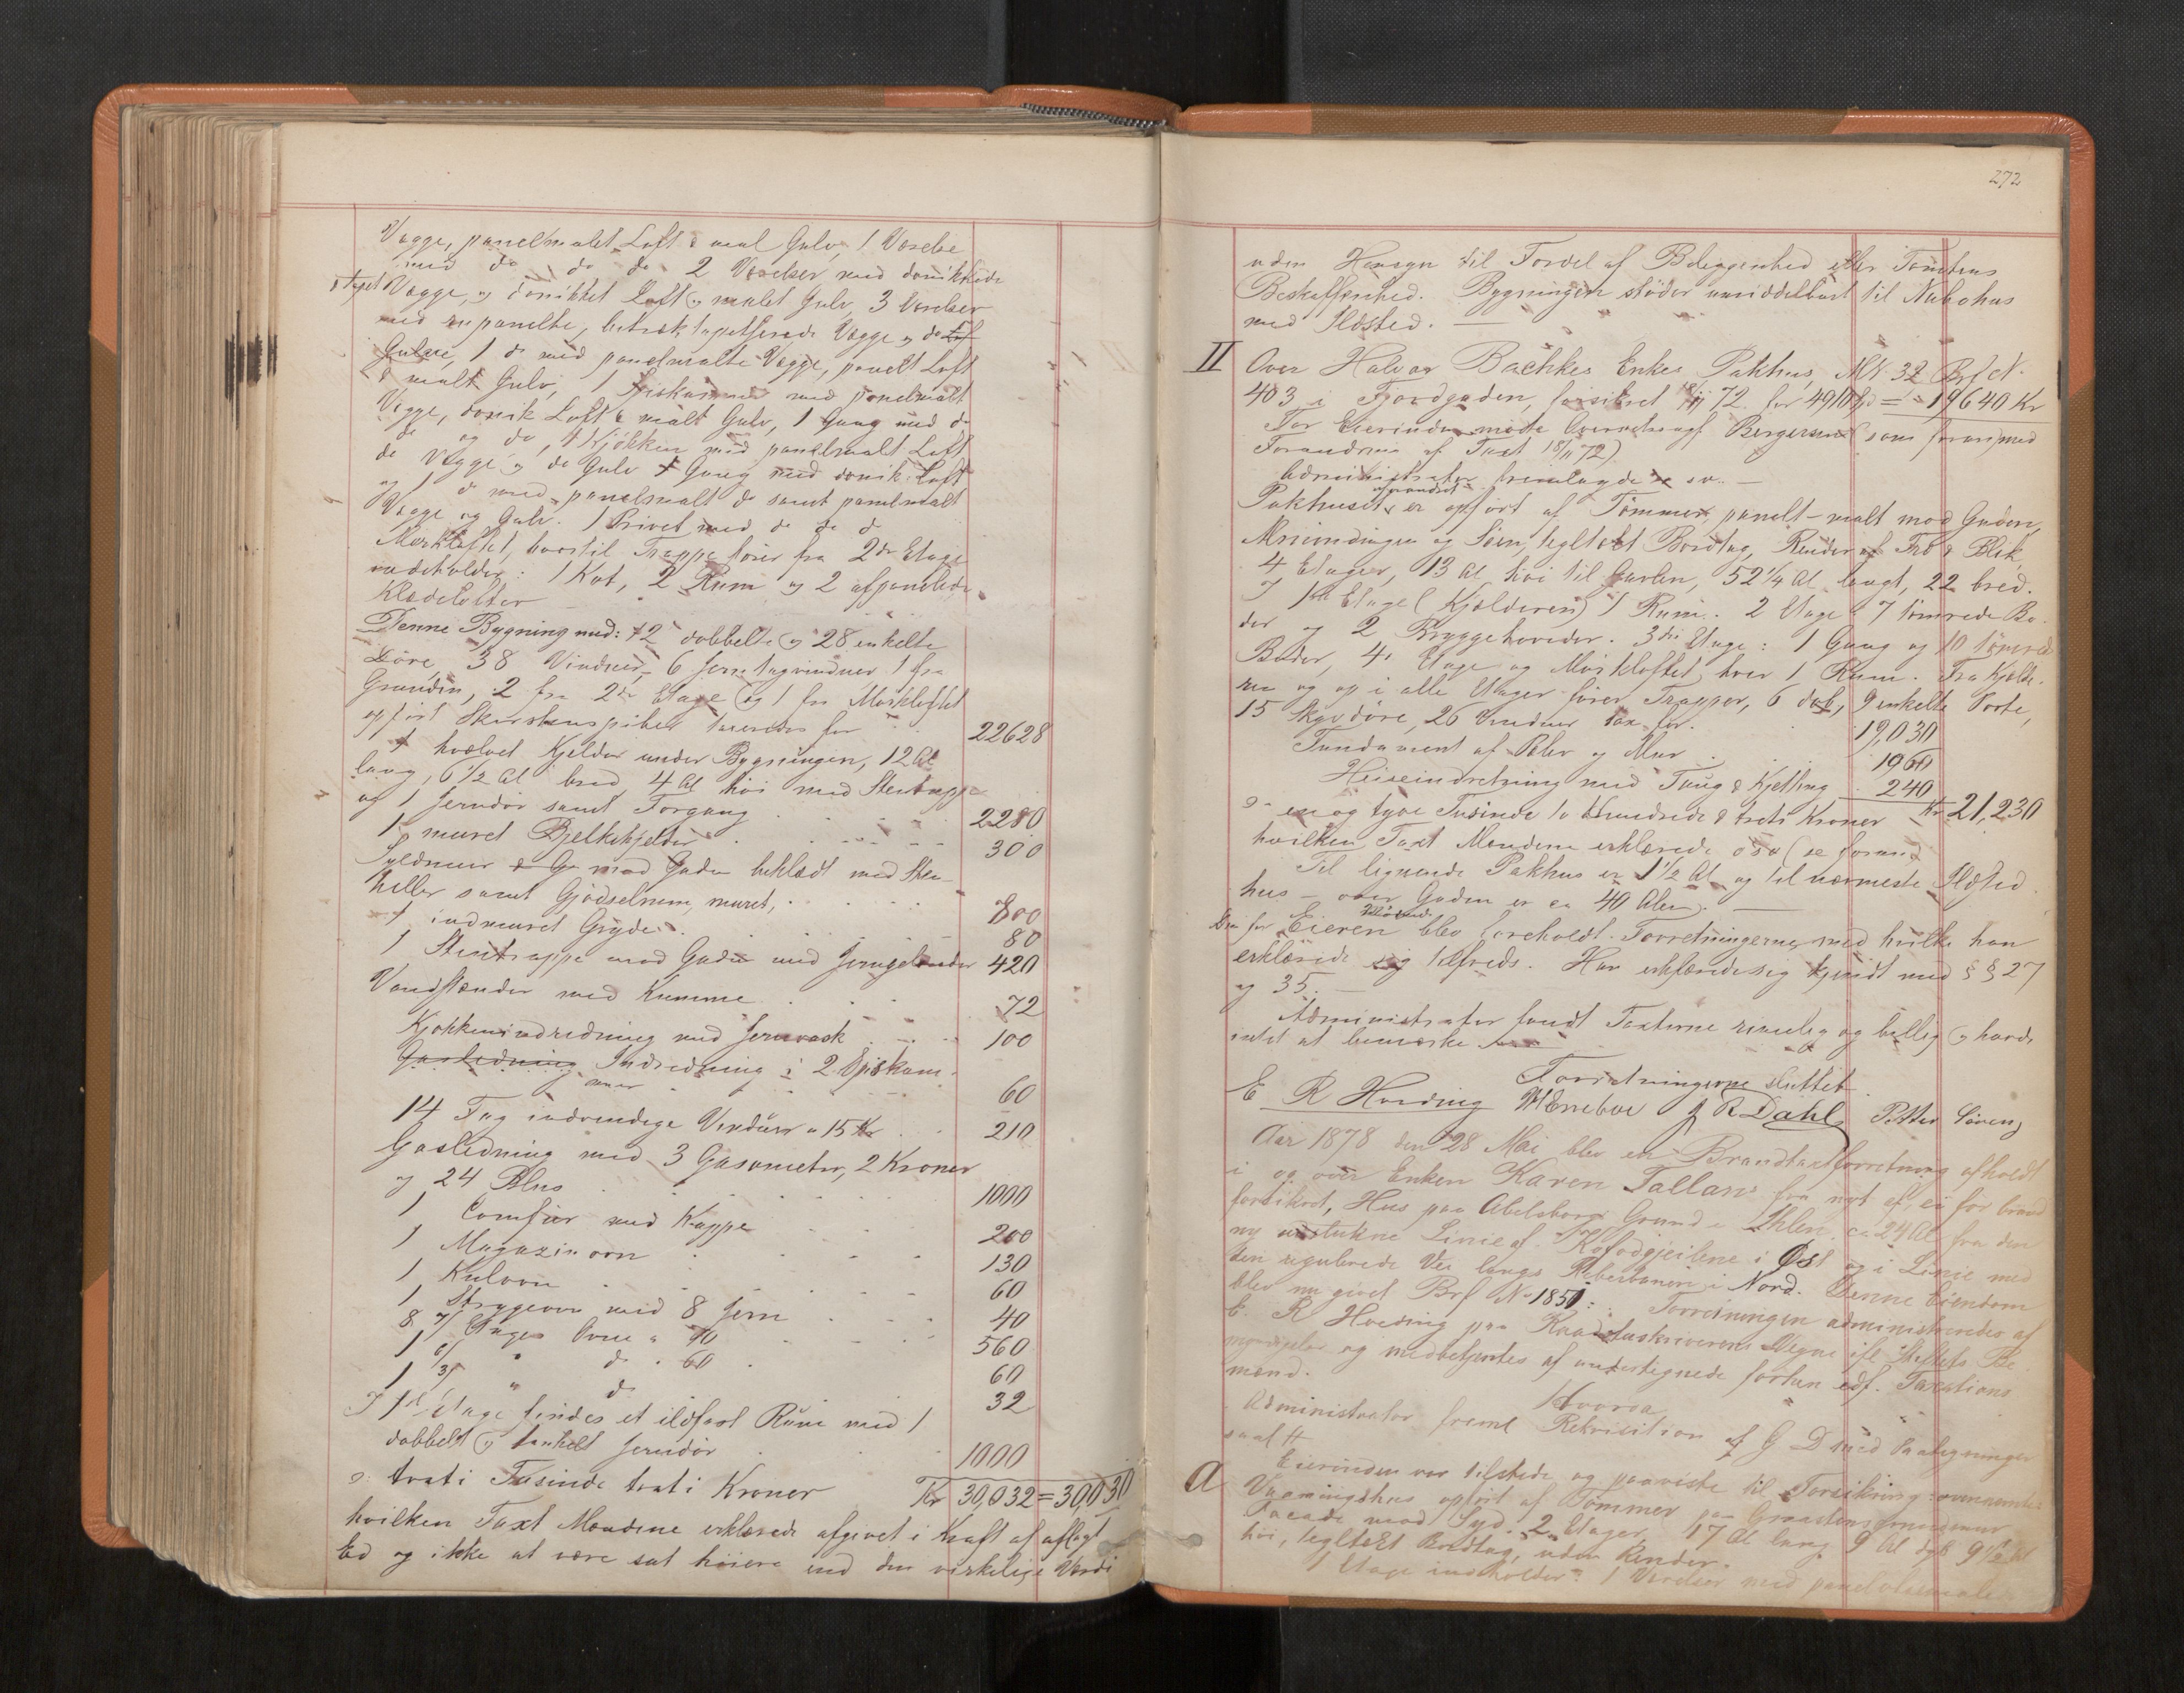 Vægge, panelmalet Loft & mal Gulv, 1 Værelse
med do do do 2 Værelser med donikkede
& tapet Vægge, og donikket Loft og malet Gulv, 3 Værelser
med panelte, betræk tapetserede Vægge og do
Gulve, 1 do med panelmalte Vægge, panelt Loft
& malt Gulv, 1 Spiskammer med panelmalt
Vægge, donik Loft & malt Gulv, 1 Gang med do
do og do, 1 Kjøkken med panelmalt Loft
do Vægge og do Gulv 1 Gang med donik. Loft
og 1 do med panelmalt do samt panelmalt
Vægge og Gulv. 1 Privet med do do do
Mørkloftet, hvortil Trappe fører fra 2den Etage
indeholder: 1 Kot, 2 Rum og 2 afpanelede
Klædelofter
Denne Bygning med: 12 dobbelte og 28 enkelte
Døre, 38 Vinduer, 6 Jerntagvinduer 1 fra
Grunden, 2 fra 2den Etage og 1 fra Mørkloftet
opført Skorstenspiber taxeredes for 22628
1 hvælvet Kjelder under Bygningen, 12 Al
lang, 6 1/2 Al bred 4 Al høi med Stentrappe
og 1 Jerndør samt Forgang 2280
1 muret Bjelkekjelder 300
Syldmuur mod Gaden beklædt med Sten-
heller samt Gjødselrum, muret, 800
1 indmuret Gryde 80
1 Stentrappe mod Gaden med Jerngelænder 420
Vandstænder med Kumme 72
Kjøkkenindredning med Jernvask 100
Gasledning Indredning i 2 Spiskam-
mer 60
14 Fag indvendige Vinduer a 15 Kr 210
Gasledning med 3 Gasometer, 2 Kroner
og 24 Blus 1000
1 Comfur med Kappe 200
1 Magazinovn 130
1 Kulovn 60
1 Strygeovn med 8 Jern 40
8 2/ Etages Ovne a 70 560
1 do 60 60
1 3/ " do 32
I 1ste Etage findes et ildfast Rum med 1
dobbelt og 1 enkelt Jerndør 1000
ɔ: treti Tusinde treti Kroner Kr 30,032 = 30,030
hvilken Taxt Mændene erklærede afgivet i Kraft af aflagt
Ed og ikke at være sat høiere end den virkelige Værdi
272
uden Hensyn til Fordel af Beliggenhed eller Tomtens
Beskaffenhed. Bygningen støder umiddelbart til Nabohus
med Ildsted.
II Over Halvor Bachkes Enkes Pakhus, M.N. 32 Brf N.
403 i Fjordgaden, forsikret 18/11 72 for 4910 Spd = 19640 Kr
For Eierinden mødte Overretssagf Bergersen (som foran med
Forandring af Taxt 18/11 72)
Administrator fremlagde o sv.
Pakhuset uforandret er opført af Tømmer, panelt - malt mod Gaden,
Mrimdingen og Søen, tegltækt Bordtag, Render af Træ & Blik,
4 Etager, 13 Al høi til Gavlen, 52 1/4 Al langt, 22 bred.
I 1ste Etage (Kjælderen) 1 Rum. 2 Etage 7 tømrede Bo-
der og 2 Bryggehoveder. 3die Etage: 1 Gang og 10 tømrede
Boder, 4de Etage og Mørkloftet hver 1 Rum. Fra Kjælde-
ren og op i alle Etager fører Trapper, 6 dob, 9 enkelte Porte,
15 Skyvdøre, 26 Vinduer tax for 19,030
Fundament af Pæler og Mur 1960
Heiseindretning med Taug & Kjetting 240
ɔ: en og tyve Tusinde to Hundrede & treti Kroner Kr 21,230
hvilken Taxt Mændene erklærede osv (se foran)
Til lignende Pakhus er 1 1/2 Al og til nærmeste Ildsted
hus - over Gaden er ca 40 Alen.
Den for Eieren Mødende blev foreholdt Forretningerne, med hvilke han
erklærede sig tilfreds. Han erklærede sig kjendt med § § 27
og 35.
Administrator fandt Taxterne rimelig og billig og havde
intet at bemærke
Forretningerne sluttet
E R Hveding J R Dahl Petter Sørensen
Aar 1878 den 28 Mai blev en Brandtaxtforretning afholdt
i og over Enken Karen Tallan's fra nyt af, ei før brand
forsikret, Hus paa Abelsborg Grund i Ihlen ca 24 Al fra den
ny udstukne Linie af Kofodgjeilene i Øst og i Linie med
den regulerede Vei langs Reberbanen i Nord. Denne Eiendom
blev nu givet Brf N 1851. Forretningen administreredes af
E. R Hveding paa Raadstueskriverens Vegne ifl Skiftets Be
myndigelse og medbetjentes af undertegnede fortsen edf. Taxations
mænd.
Hvorda
Administrator freml Rekvisition af G D med Paategninger
saal #
Eierinden var tilstede og paaviste til Forsikring ovennævnte
a Vaaningshus opført af Tømmer paa Graastens Grundmur
Facade mod Syd. 2 Etager, 17 Al lang 9 Al dyb 9 1/2 Al
høi, tegltækt Bordtag, uden Render.
1 Etage indeholder: 1 Værelser med panel oliemalte